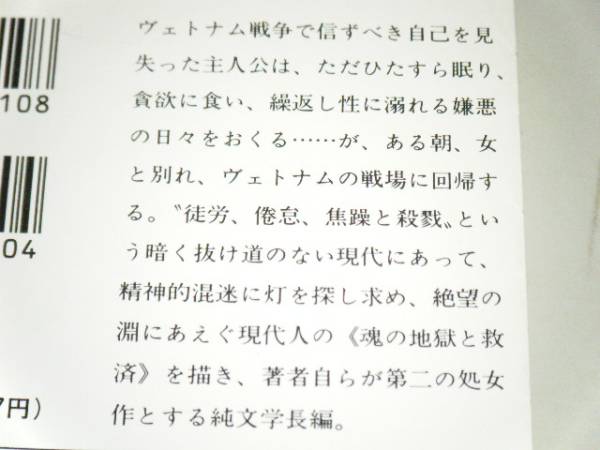 ヴェトナム戦争で信ずべき自己を見
失った主人公は、ただひたすら眠り、
貪欲に食い、繰返し性に溺れる嫌悪
の日々をおくる……が、ある朝、女
と別れ、ヴェトナムの戦場に回帰す
る。〝徒労、倦怠、焦躁と殺戮〟とい
う暗く抜け道のない現代にあって、
精神的混迷に灯を探し求め、絶望の
淵にあえぐ現代人の《魂の地獄と救
済》を描き、著者自らが第二の処女
作とする純文学長編。
108
04
7円)